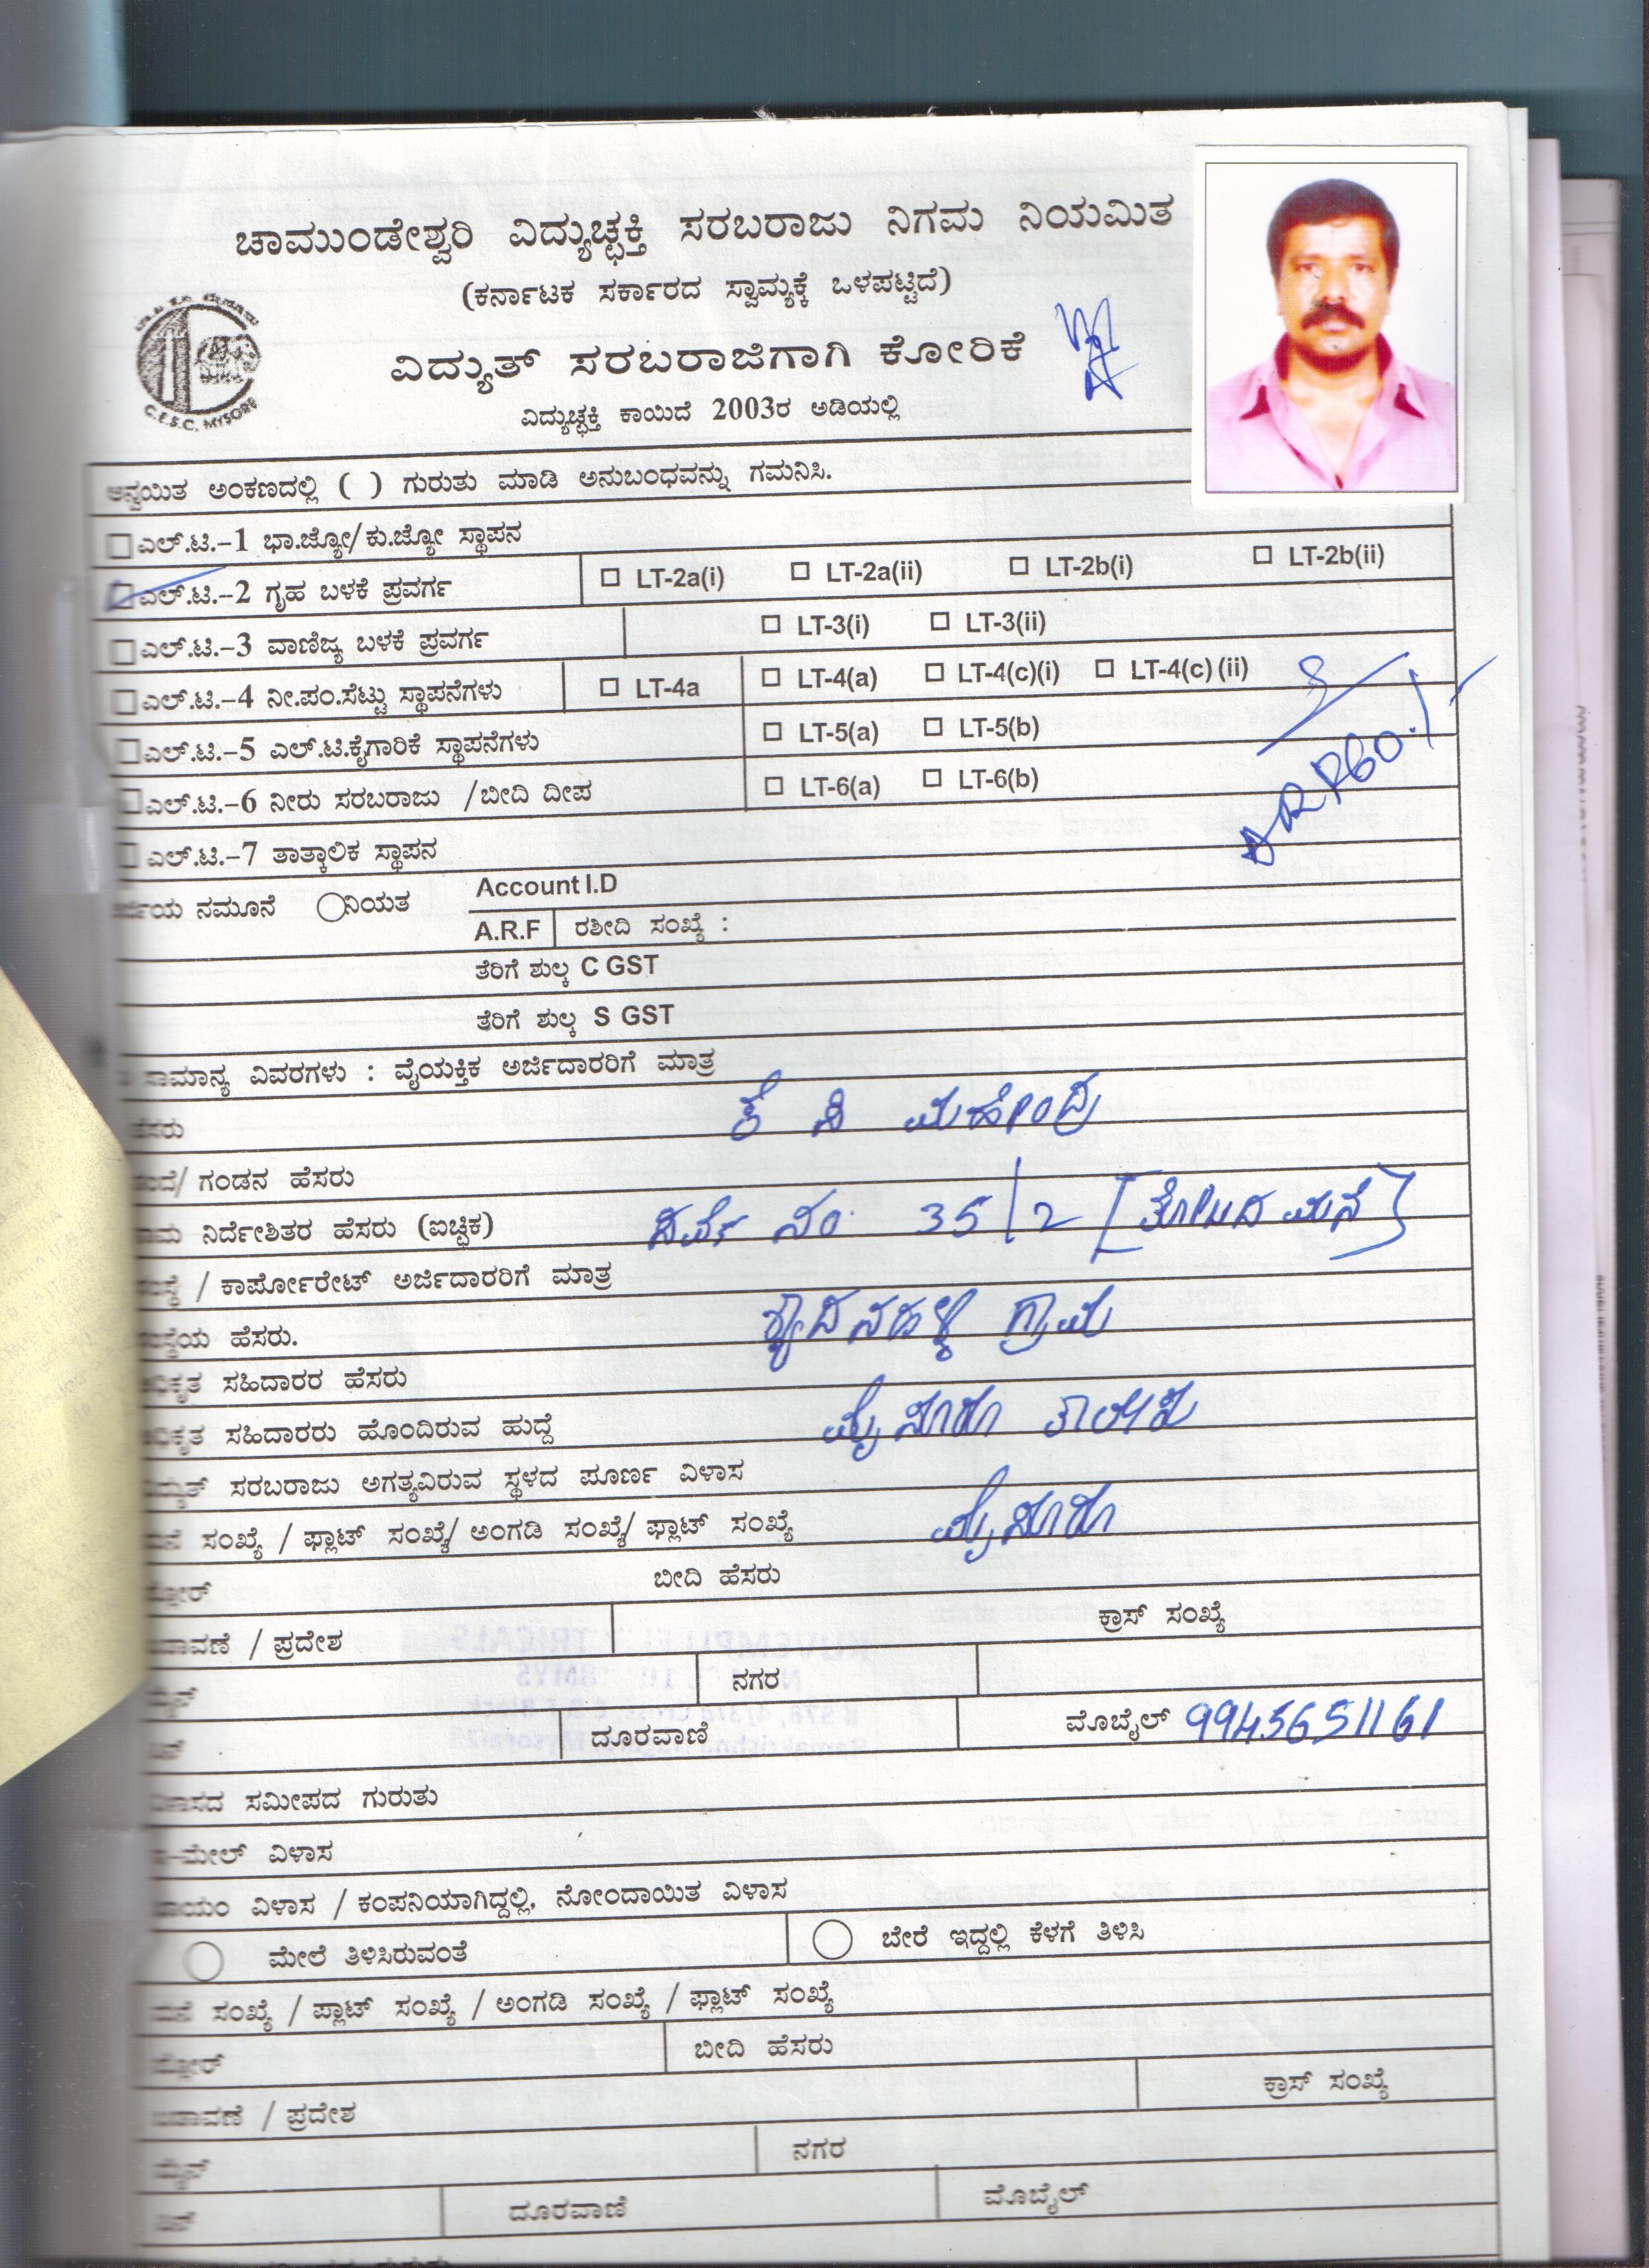 ಚಾಮುಂಡೇಶ್ವರಿ ವಿದ್ಯುಚ್ಛಕ್ತಿ ಸರಬರಾಜು ನಿಗಮ ನಿಯಮಿತ
(ಕರ್ನಾಟಕ ಸರ್ಕಾರದ ಸ್ವಾಮ್ಯಕ್ಕೆ ಒಳಪಟ್ಟಿದೆ)
ವಿದ್ಯುತ್ ಸರಬರಾಜಿಗಾಗಿ ಕೋರಿಕೆ
C.E.S.C. MYSORE
ವಿದ್ಯುಚ್ಛಕ್ತಿ ಕಾಯಿದೆ 2003ರ ಅಡಿಯಲ್ಲಿ
ಅನ್ವಯಿತ ಅಂಕಣದಲ್ಲಿ ( ) ಗುರುತು ಮಾಡಿ ಅನುಬಂಧವನ್ನು ಗಮನಿಸಿ.
ಎಲ್.ಟಿ.–1 ಭಾ.ಜ್ಯೋ/ಕು.ಜ್ಯೋ ಸ್ಥಾಪನ
ಎಲ್.ಟಿ.–2 ಗೃಹ ಬಳಕೆ ಪ್ರವರ್ಗ LT-2a(i) LT-2a(ii) LT-2b(i) LT-2b(ii)
ಎಲ್.ಟಿ.–3 ವಾಣಿಜ್ಯ ಬಳಕೆ ಪ್ರವರ್ಗ LT-3(i) LT-3(ii)
ಎಲ್.ಟಿ.–4 ನೀ.ಪಂ.ಸೆಟ್ಟು ಸ್ಥಾಪನೆಗಳು LT-4a LT-4(a) LT-4(c)(i) LT-4(c)(ii)
ಎಲ್.ಟಿ.–5 ಎಲ್.ಟಿ.ಕೈಗಾರಿಕೆ ಸ್ಥಾಪನೆಗಳು LT-5(a) LT-5(b)
ಎಲ್.ಟಿ.–6 ನೀರು ಸರಬರಾಜು /ಬೀದಿ ದೀಪ LT-6(a) LT-6(b)
ಎಲ್.ಟಿ.–7 ತಾತ್ಕಾಲಿಕ ಸ್ಥಾಪನ
ನಮೂನೆ ನಿಯತ Account I.D
A.R.F ರಶೀದಿ ಸಂಖ್ಯೆ :
ತೆರಿಗೆ ಶುಲ್ಕ C GST
ತೆರಿಗೆ ಶುಲ್ಕ S GST
ಸಾಮಾನ್ಯ ವಿವರಗಳು : ವೈಯಕ್ತಿಕ ಅರ್ಜಿದಾರರಿಗೆ ಮಾತ್ರ
ಹೆಸರು ಕೆ ಸಿ ಮಹೇಂದ್ರ
/ ಗಂಡನ ಹೆಸರು
ನಿರ್ದೇಶಿತರ ಹೆಸರು (ಐಚ್ಛಿಕ) ಸರ್ವೆ ನಂ 35/2 [ತೋಟದ ಮನೆ]
/ ಕಾರ್ಪೋರೇಟ್ ಅರ್ಜಿದಾರರಿಗೆ ಮಾತ್ರ
ಹೆಸರು. ಗ್ರಾಮ
ಸಹಿದಾರರ ಹೆಸರು
ಸಹಿದಾರರು ಹೊಂದಿರುವ ಹುದ್ದೆ ಮೈಸೂರು ತಾಲೂಕು
ಸರಬರಾಜು ಅಗತ್ಯವಿರುವ ಸ್ಥಳದ ಪೂರ್ಣ ವಿಳಾಸ
ಸಂಖ್ಯೆ / ಫ್ಲಾಟ್ ಸಂಖ್ಯೆ/ ಅಂಗಡಿ ಸಂಖ್ಯೆ/ ಫ್ಲಾಟ್ ಸಂಖ್ಯೆ ಮೈಸೂರು
ಬೀದಿ ಹೆಸರು
/ ಪ್ರದೇಶ ಕ್ರಾಸ್ ಸಂಖ್ಯೆ
ನಗರ
ದೂರವಾಣಿ ಮೊಬೈಲ್ 9945651161
ಸಮೀಪದ ಗುರುತು
ಮೇಲ್ ವಿಳಾಸ
ವಿಳಾಸ / ಕಂಪನಿಯಾಗಿದ್ದಲ್ಲಿ, ನೋಂದಾಯಿತ ವಿಳಾಸ
ಮೇಲೆ ತಿಳಿಸಿರುವಂತೆ ಬೇರೆ ಇದ್ದಲ್ಲಿ ಕೆಳಗೆ ತಿಳಿಸಿ
ಸಂಖ್ಯೆ / ಪ್ಲಾಟ್ ಸಂಖ್ಯೆ / ಅಂಗಡಿ ಸಂಖ್ಯೆ / ಫ್ಲಾಟ್ ಸಂಖ್ಯೆ
ಬೀದಿ ಹೆಸರು
/ ಪ್ರದೇಶ ಕ್ರಾಸ್ ಸಂಖ್ಯೆ
ನಗರ
ದೂರವಾಣಿ ಮೊಬೈಲ್